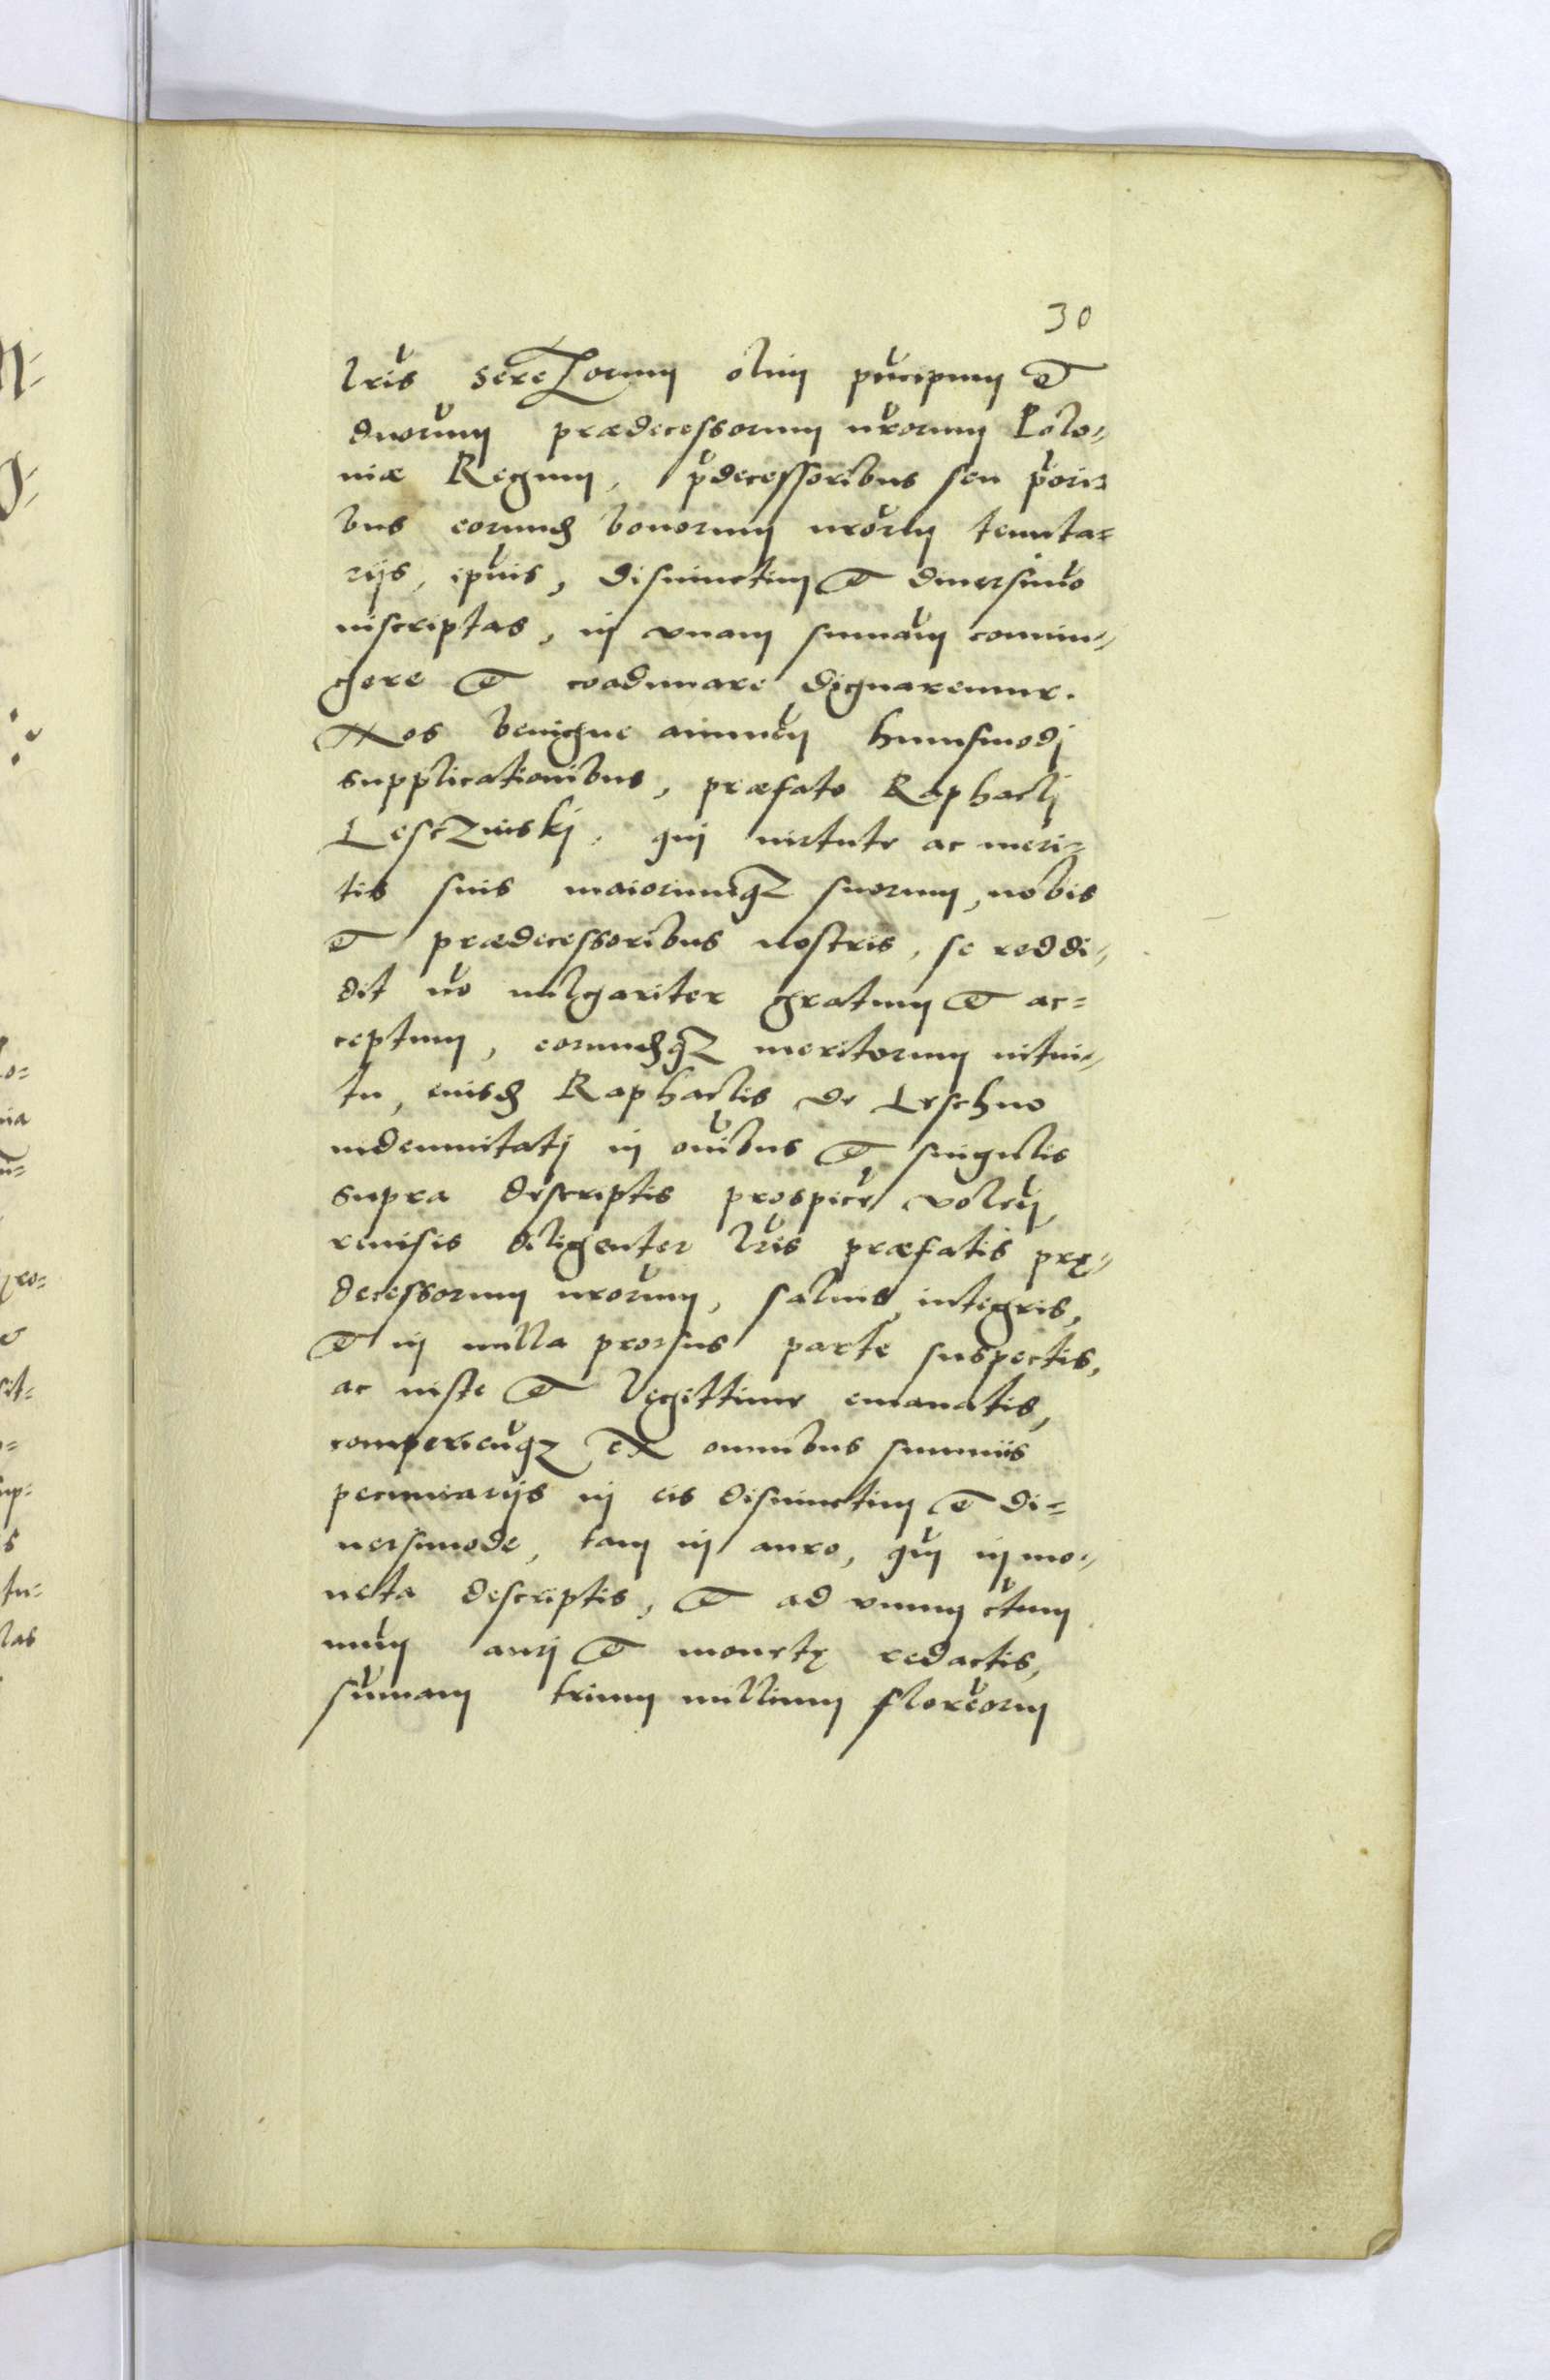 30
lris Sere[nissi]morum olim pncipum et
dnorum prædecessorum nrorum Polo=
niæ Regum, pdecessoribus seu priori=
bus eorumd bonorum nrorum tenuta=
rijs, ipsius, disiunctim et diuersimo
inscriptas, in vnam summam coniun=
gere et coadunare dignaremur.
Nos benigne annuen huiusmodj
supplicationibus, præfato Raphaelj
LescZinskj, quj uirtute ac meri=
tis suis maiorumqz suorum, nobis
et prædecessoribus nostris, se reddi=
dit no uulgariter gratum et ac=
ceptum, eorumdqz meritorum intui=
tu, eiusd Raphaelis de Leschno
indemnitatj in oibus et singulis
supra descriptis prospicere volen,
reuisis diligenter lris præfatis prę=
decessorum nrorum, saluis, integris,
et in nulla prorsus parte suspectis,
ac iuste et legittime emanatis,
comperienqz ex omnibus summis
pecuniarijs in eis disiunctim et di=
uersimode, tam in auro, qum in mo=
neta descriptis, et ad vnum ctum
num aurj et monetę redactis,
sumam trium millium florenorum